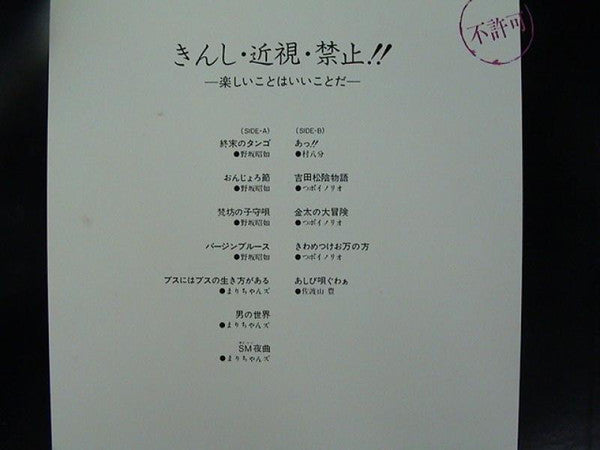 不許可
きんし・近視・禁止!!
—楽しいことはいいことだ—
(SIDE-A)
終末のタンゴ
●野坂昭如
おんじょろ節
●野坂昭如
梵坊の子守唄
●野坂昭如
バージンブルース
●野坂昭如
ブスにはブスの生き方がある
●まりちゃんズ
男の世界
●まりちゃんズ
SM夜曲
●まりちゃんズ
(SIDE-B)
あっ!!
●村八分
吉田松陰物語
●つボイノリオ
金太の大冒険
●つボイノリオ
きわめつけお万の方
●つボイノリオ
あしび唄ぐわぁ
●佐渡山 豊